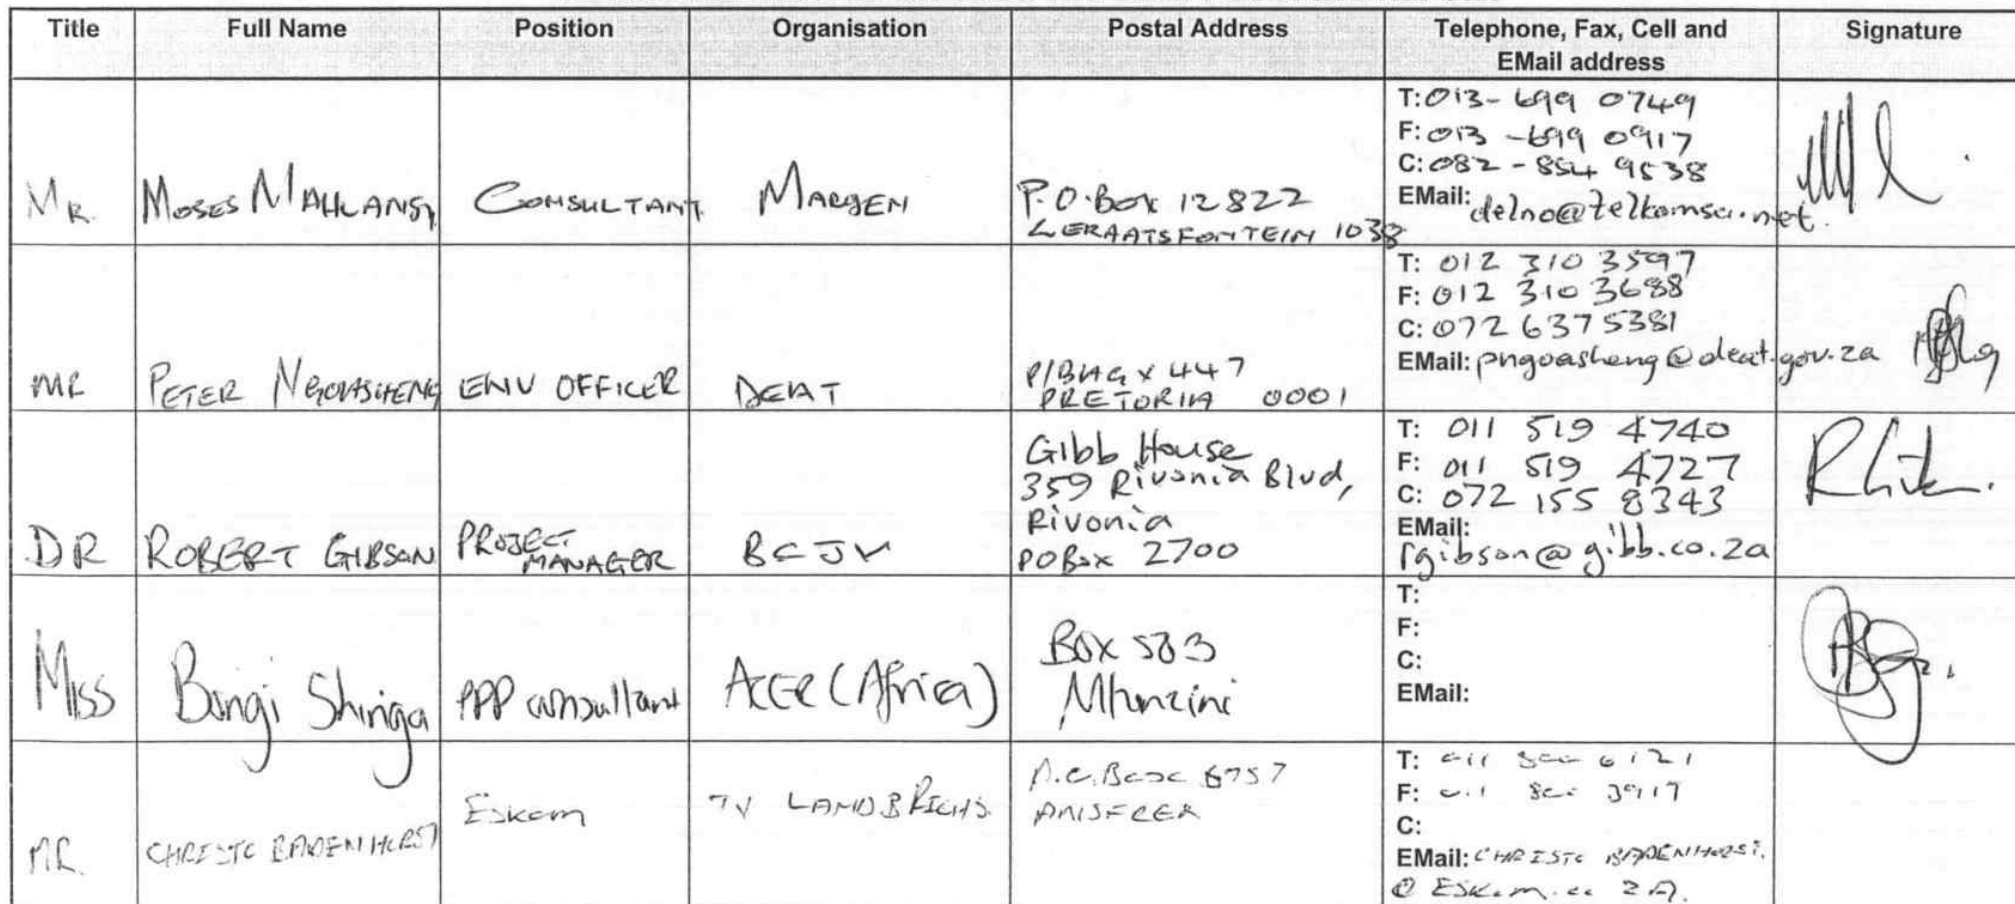 Title Full Name Position Organisation Postal Address Telephone, Fax, Cell and EMail address Signature
MR. MOSES MAHLANGU CONSULTANT MARGEN P.O.BOX 12822
GERAATSFONTEIN 1038
T: 013-699 0749
F: 013-699 0917
C: 082-854 9538
EMail: delno@telkomsa.net.
MR PETER NGOASHENG ENV OFFICER DEAT P/BAG X 447
PRETORIA 0001
T: 012 310 3597
F: 012 310 3688
C: 072 637 5381
EMail: pngoasheng@deat.gov.za
DR ROBERT GIBSON PROJECT
MANAGER
BCJV
Gibb House
359 Rivonia Blvd,
Rivonia
PO Box 2700
T: 011 519 4740
F: 011 519 4727
C: 072 155 8343
EMail:
rgibson@gibb.co.za
Miss Bongi Shinga PPP consultant ACER (Africa) Box 503
Mtunzini
T:
F:
C:
EMail:
MR. CHRISTO BADENHORST Eskom TV P.O.Box
T: 011 800
F: 011
C:
EMail: CHRISTO BADENHORST.
@ Eskom.co ZA.